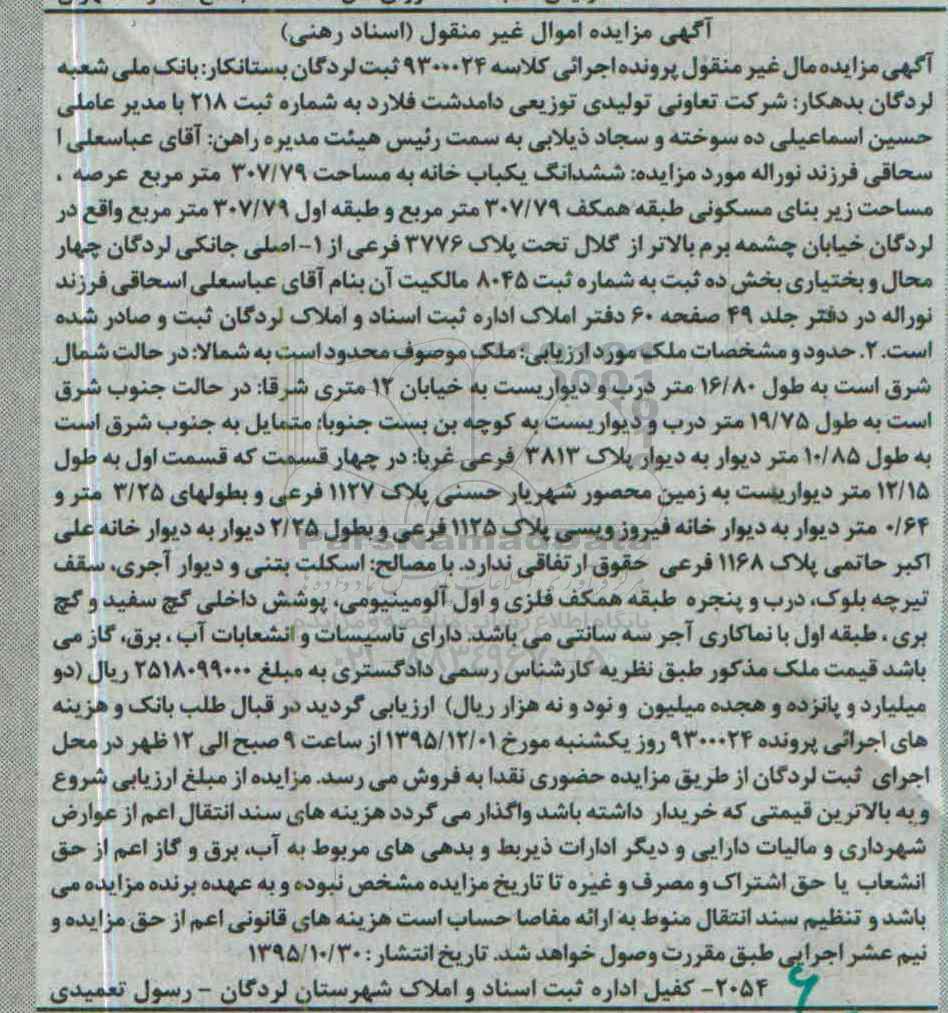 آگهی مزایده اموال غیر منقول (اسناد رهنی)
آگهی مزایده مال غیر منقول پرونده اجرائی کلاسه ۹۳۰۰۰۲۴ ثبت لردگان بستانکار: بانک ملی شعبه
لردگان بدهکار: شرکت تعاونی تولیدی توزیعی دامدشت فلارد به شماره ثبت ۲۱۸ با مدیر عاملی
حسین اسماعیلی ده سوخته و سجاد ذیلابی به سمت رئیس هیئت مدیره راهن: آقای عباسعلی ا
سحاقی فرزند نوراله مورد مزایده: ششدانگ یکباب خانه به مساحت ۳۰۷/۷۹ متر مربع عرصه ،
مساحت زیر بنای مسکونی طبقه همکف ۳۰۷/۷۹ متر مربع و طبقه اول ۳۰۷/۷۹ متر مربع واقع در
لردگان خیابان چشمه برم بالاتر از گلال تحت پلاک ۳۷۷۶ فرعی از ۱- اصلی جانکی لردگان چهار
محال و بختیاری بخش ده ثبت به شماره ثبت ۸۰۴۵ مالکیت آن بنام آقای عباسعلی اسحاقی فرزند
نوراله در دفتر جلد ۴۹ صفحه ۶۰ دفتر املاک اداره ثبت اسناد و املاک لردگان ثبت و صادر شده
است. ۲. حدود و مشخصات ملک مورد ارزیابی: ملک موصوف محدود است به شمالا: در حالت شمال
شرق است به طول ۱۶/۸۰ متر درب و دیواریست به خیابان ۱۲ متری شرقا: در حالت جنوب شرق
است به طول ۱۹/۷۵ متر درب و دیواریست به کوچه بن بست جنوبا: متمایل به جنوب شرق است
به طول ۱۰/۸۵ متر دیوار به دیوار پلاک ۳۸۱۳ فرعی غربا: در چهار قسمت که قسمت اول به طول
۱۲/۱۵ متر دیواریست به زمین محصور شهریار حسنی پلاک ۱۱۲۷ فرعی و بطولهای ۳/۲۵ متر و
۰/۶۴ متر دیوار به دیوار خانه فیروز ویسی پلاک ۱۱۲۵ فرعی و بطول ۲/۲۵ دیوار به دیوار خانه علی
اکبر حاتمی پلاک ۱۱۶۸ فرعی حقوق ارتفاقی ندارد. با مصالح: اسکلت بتنی و دیوار آجری، سقف
تیرچه بلوک، درب و پنجره طبقه همکف فلزی و اول آلومینیومی، پوشش داخلی گچ سفید و گچ
بری ، طبقه اول با نماکاری آجر سه سانتی می باشد. دارای تاسیسات و انشعابات آب ، برق، گاز می
باشد قیمت ملک مذکور طبق نظریه کارشناس رسمی دادگستری به مبلغ ۲۵۱۸۰۹۹۰۰۰ ریال (دو
میلیارد و پانزده و هجده میلیون و نود و نه هزار ریال) ارزیابی گردید در قبال طلب بانک و هزینه
های اجرائی پرونده ۹۳۰۰۰۲۴ روز یکشنبه مورخ ۱۳۹۵/۱۲/۰۱ از ساعت ۹ صبح الی ۱۲ ظهر در محل
اجرای ثبت لردگان از طریق مزایده حضوری نقدا به فروش می رسد. مزایده از مبلغ ارزیابی شروع
و به بالاترین قیمتی که خریدار داشته باشد واگذار می گردد هزینه های سند انتقال اعم از عوارض
شهرداری و مالیات دارایی و دیگر ادارات ذیربط و بدهی های مربوط به آب، برق و گاز اعم از حق
انشعاب یا حق اشتراک و مصرف و غیره تا تاریخ مزایده مشخص نبوده و به عهده برنده مزایده می
باشد و تنظیم سند انتقال منوط به ارائه مفاصا حساب است هزینه های قانونی اعم از حق مزایده و
نیم عشر اجرایی طبق مقررت وصول خواهد شد. تاریخ انتشار: ۱۳۹۵/۱۰/۳۰
۲۰۵۴- کفیل اداره ثبت اسناد و املاک شهرستان لردگان - رسول تعمیدی